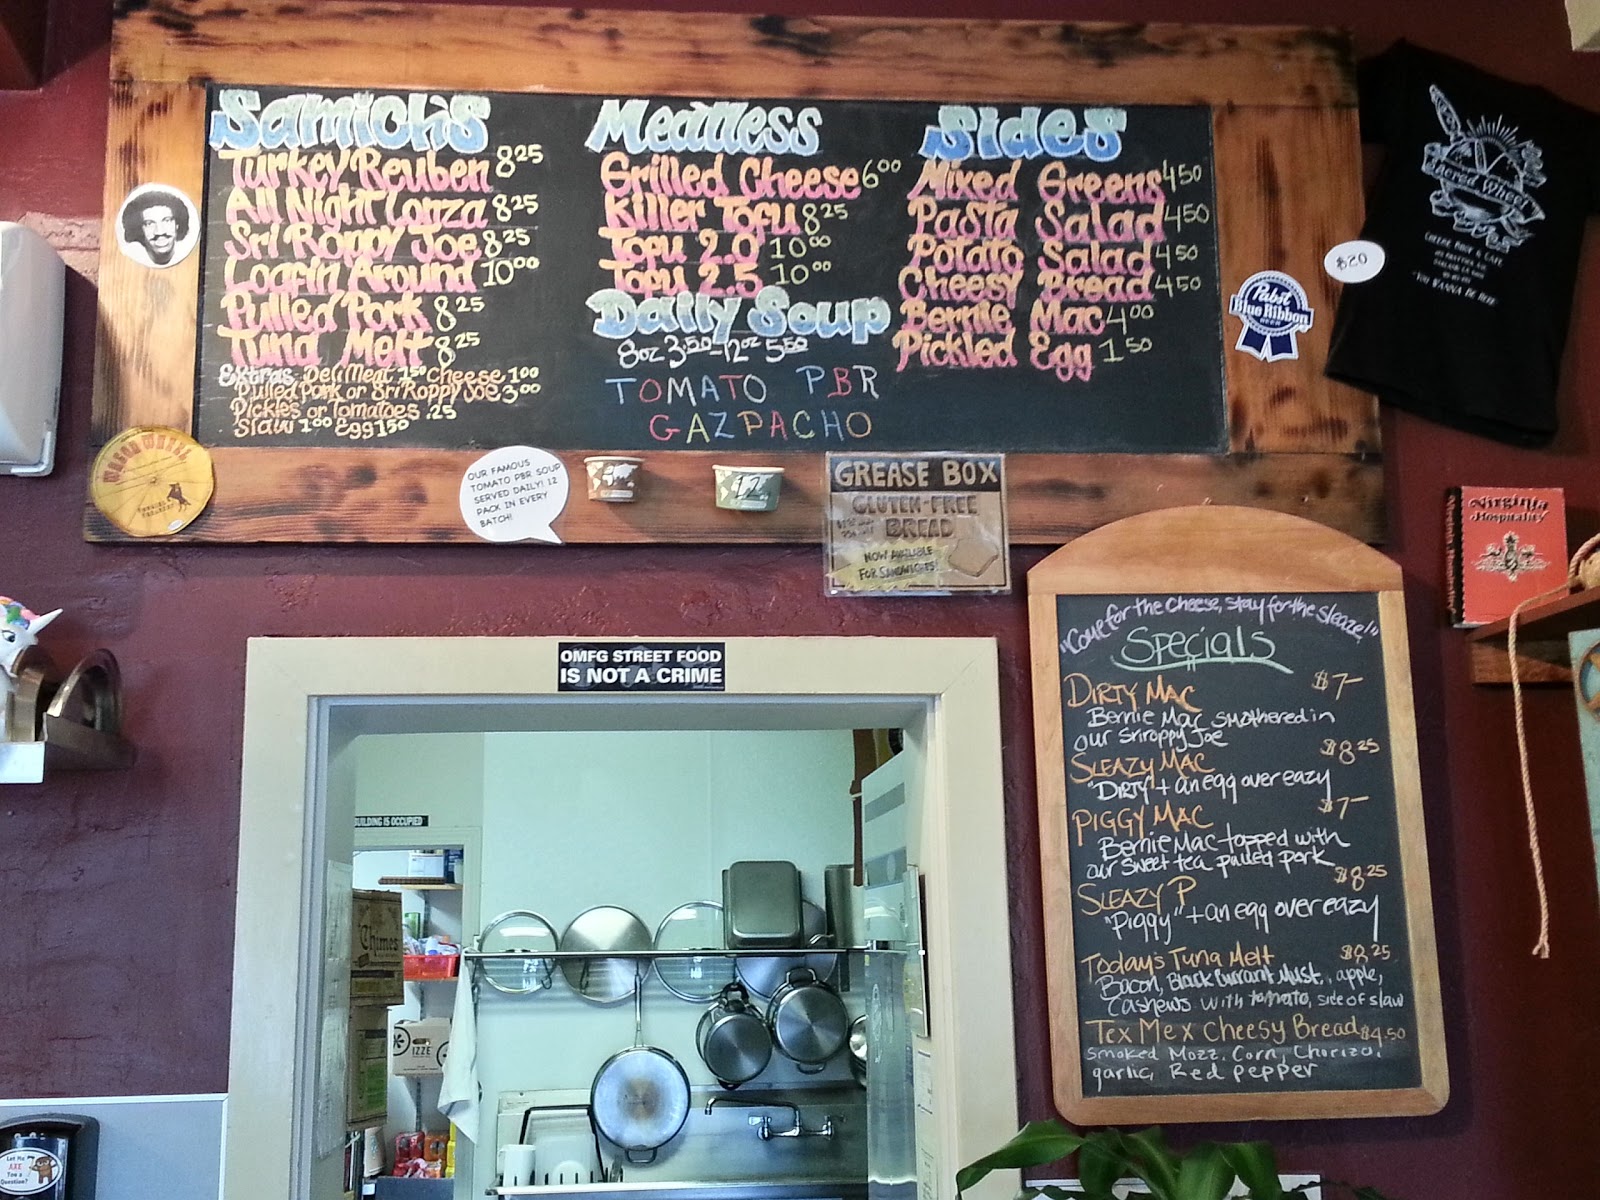 Samich's
Turkey Reuben 8 25
All Night Lonza 8 25
Sri Roppy Joe 8 25
Loafin Around 10 00
Pulled Pork 8 25
Tuna Melt 8 25
Extras Deli Meat 1 50 Cheese 1 00
Pulled Pork or Sri Roppy Joe 3 00
Pickles or Tomatoes .25
Slaw 1 00 Egg 1 50
Meatless
Grilled Cheese 6 00
Killer Tofu 8 25
Tofu 2.0 10 00
Tofu 2.5 10 00
Daily Soup
8oz 3.50 - 12oz 5 50
TOMATO PBR
GAZPACHO
Sides
Mixed Greens 4 50
Pasta Salad 4 50
Potato Salad 4 50
Cheesy Bread 4 50
Bernie Mac 4 00
Pickled Egg 1 50
Pabst
Blue Ribbon
$20
Sacred Wheel
CHEESE SHOP & CAFE
"YOU WANNA BE HERE"
OUR FAMOUS
TOMATO PBR SOUP
SERVED DAILY! 12
PACK IN EVERY
BATCH!
12
GREASE BOX
GLUTEN-FREE
BREAD
NOW AVAILABLE
FOR SANDWICHES!
Virginia
Hospitality
OMFG STREET FOOD
IS NOT A CRIME
BUILDING IS OCCUPIED
Chimes
IZZE
"Come for the Cheese, stay for the sleaze!"
Specials
DIRTY MAC $7-
Bernie Mac smothered in
our Sriroppy Joe
SLEAZY MAC $8 25
"DIRTY" + an egg over eazy
PIGGY MAC $7-
Bernie Mac topped with
our sweet tea pulled pork
SLEAZY P $8 25
"Piggy" + an egg over eazy
Today's Tuna Melt $8.25
Bacon, Black Currant Must., apple,
Cashews with tomato, side of slaw
Tex Mex Cheesy Bread $4.50
Smoked Mozz, Corn, Chorizo,
garlic, Red pepper
Let Me
AXE
You a
Question?